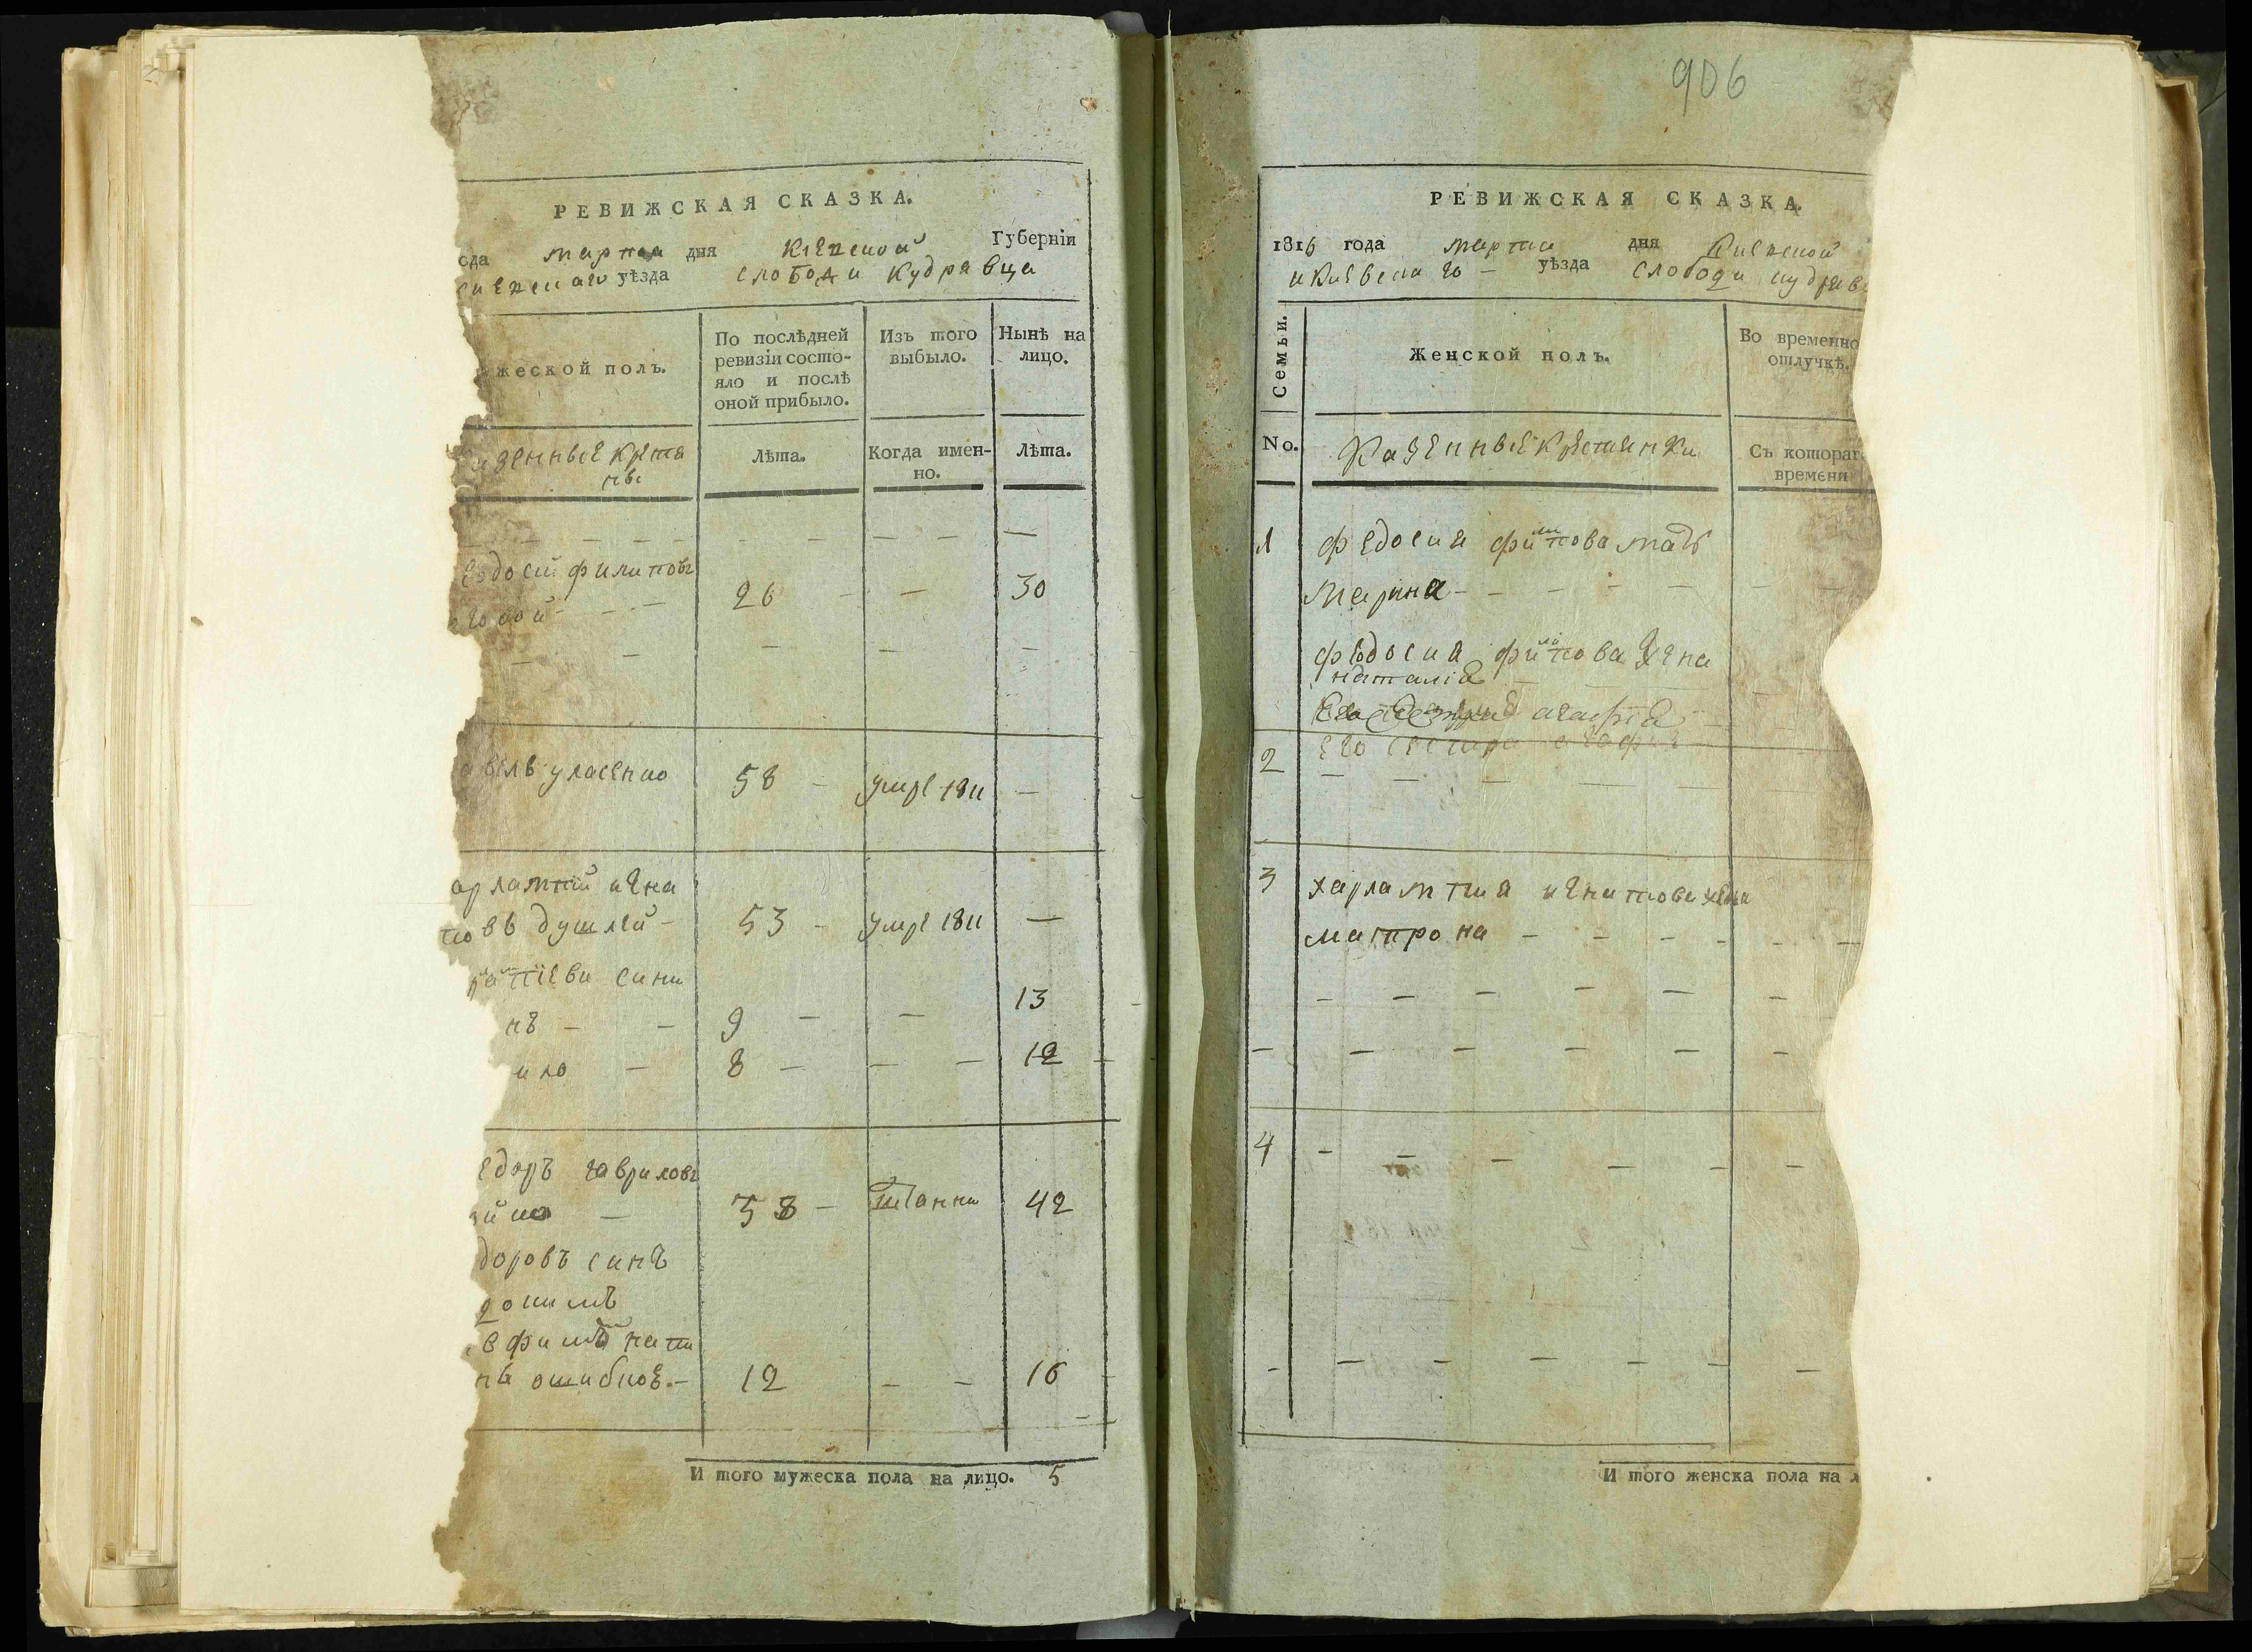 РЕВИЖСКАЯ СКАЗКА.
ода марта дня Кіевской Губерніи
уѣзда слободи Кудравца
жеской полъ.
По послѣдней
ревизіи состо-
яло и послѣ
оной прибыло.
Изъ того
выбыло.
Нынѣ на
лицо.
Лѣта.
Когда имен-
но.
Лѣта.
едосій филипов
26 — 30
авелъ уласенко 58 — умре 1811 —
арлампій игна
товъ 53 — умре 1811 —
сини
нъ — — 9 — — 13
ило — 8 — — — 12
едоръ гаврилов
38 — 42
доровъ синъ
ошибкоъ. — 12 — — 16
И того мужеска пола на лицо. 5
906
РЕВИЖСКАЯ СКАЗКА.
1816 года марта дня Киевской
и Киевска го — уѣзда слободи кудрав
Семьи.
Женской полъ.
Во временно
отлучкѣ.
No.
Казенные крестянки
Съ котораг
времени
1 федосия филипова мать
марина — — — —
федосия филипова жена
наталія
агафія
2 его сестра агафия
3 харлампия игнатова жена
матрона — — — —
4 — — — — —
И того женска пола на л